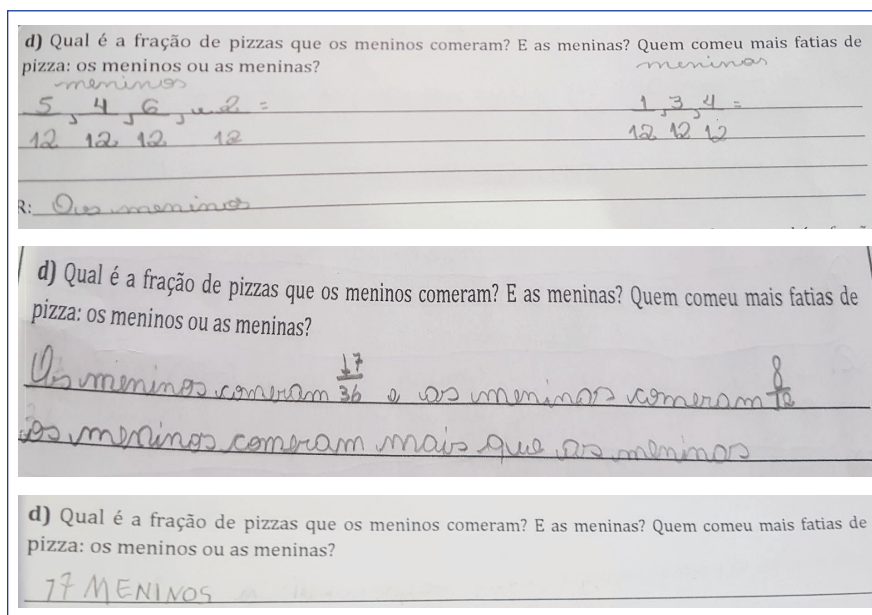 d) Qual é a fração de pizzas que os meninos comeram? E as meninas? Quem comeu mais fatias de
pizza: os meninos ou as meninas?
meninas
meninos
5 , 4 , 6 , e 2 =
12 12 12 12
1 , 3 , 4 =
12 12 12
R: Os meninos
d) Qual é a fração de pizzas que os meninos comeram? E as meninas? Quem comeu mais fatias de
pizza: os meninos ou as meninas?
Os meninos comeram 17/36 e as meninas comeram 8/12
os meninos comeram mais que as meninas
d) Qual é a fração de pizzas que os meninos comeram? E as meninas? Quem comeu mais fatias de
pizza: os meninos ou as meninas?
17 MENINOS